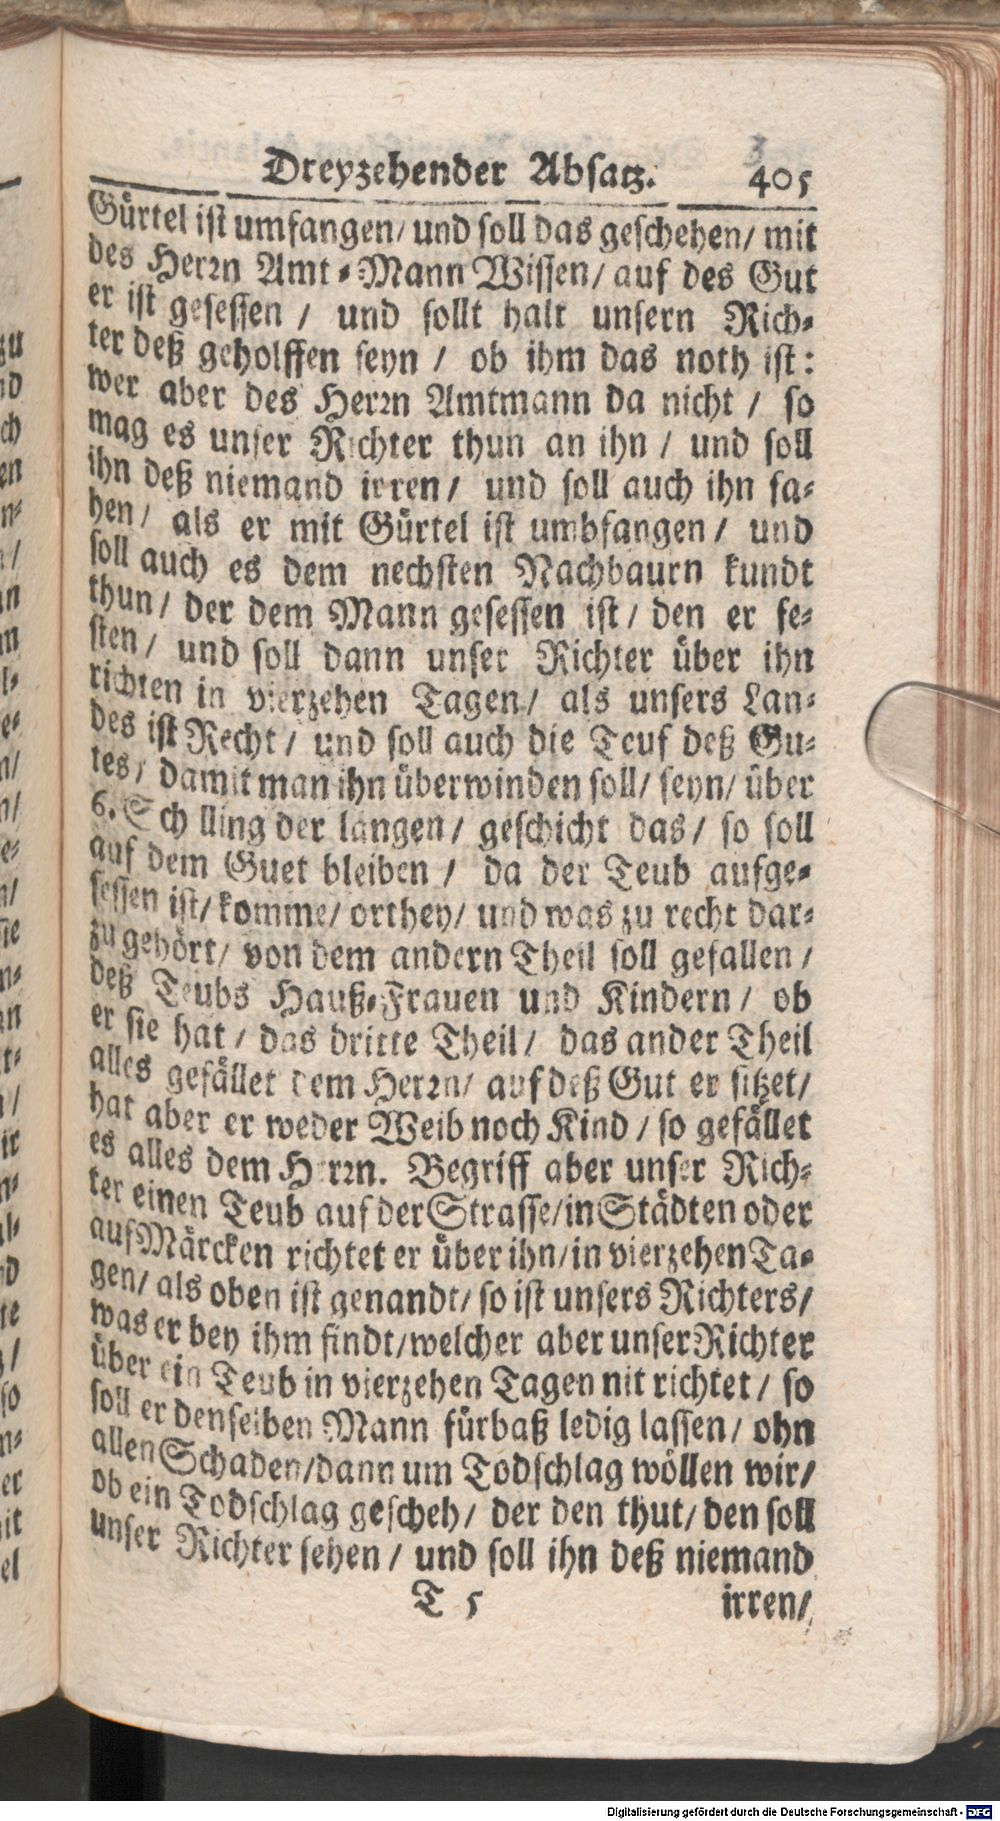 Dreyzehender Absatz. 405
Gürtel ist umfangen/ und soll das geschehen/ mit
des Herrn Amt-Mann Wissen/ auf des Gut
er ist gesessen / und sollt halt unsern Rich-
ter deß geholffen seyn / ob ihm das noth ist:
wer aber des Herrn Amtmann da nicht / so
mag es unser Richter thun an ihn / und soll
ihn deß niemand irren/ und soll auch ihn fa-
hen/ als er mit Gürtel ist umbfangen/ und
soll auch es dem nechsten Nachbaurn kundt
thun/ der dem Mann gesessen ist/ den er fe-
sten/ und soll dann unser Richter über ihn
richten in vierzehen Tagen/ als unsers Lan-
des ist Recht/ und soll auch die Teuf deß Gu-
tes/ damit man ihn überwinden soll/ seyn/ über
6. Sch lling der langen/ geschicht das/ so soll
auf dem Guet bleiben / da der Teub aufge-
sessen ist/ komme/ orthey/ und was zu recht dar-
zu gehört/ von dem andern Theil soll gefallen /
deß Teubs Hauß-Frauen und Kindern/ ob
er sie hat/ das dritte Theil/ das ander Theil
alles gefället dem Herrn/ auf deß Gut er sitzet/
hat aber er weder Weib noch Kind / so gefället
es alles dem Herrn. Begriff aber unser Rich-
ter einen Teub auf der Strasse/in Städten oder
auf Märcken richtet er über ihn/in vierzehen Ta-
gen/ als oben ist genandt/ so ist unsers Richters/
was er bey ihm findt/welcher aber unser Richter
über ein Teub in vierzehen Tagen nit richtet/ so
soll er denselben Mann fürbaß ledig lassen/ ohn
allen Schaden/dann um Todschlag wöllen wir/
ob ein Todschlag gescheh/ der den thut/ den soll
unser Richter fehen/ und soll ihn deß niemand
T 5 irren/
Digitalisierung gefördert durch die Deutsche Forschungsgemeinschaft - DFG